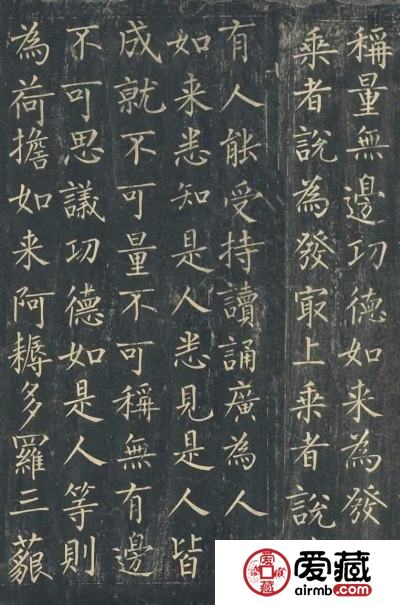 稱量無邊功德如来為發
乘者說為發冣上乘者說
有人能受持讀誦廣為人
如来悉知是人悉見是人皆
成就不可量不可稱無有邊
不可思議功德如是人等則
為荷擔如来阿耨多羅三藐
爱藏
airmb.com